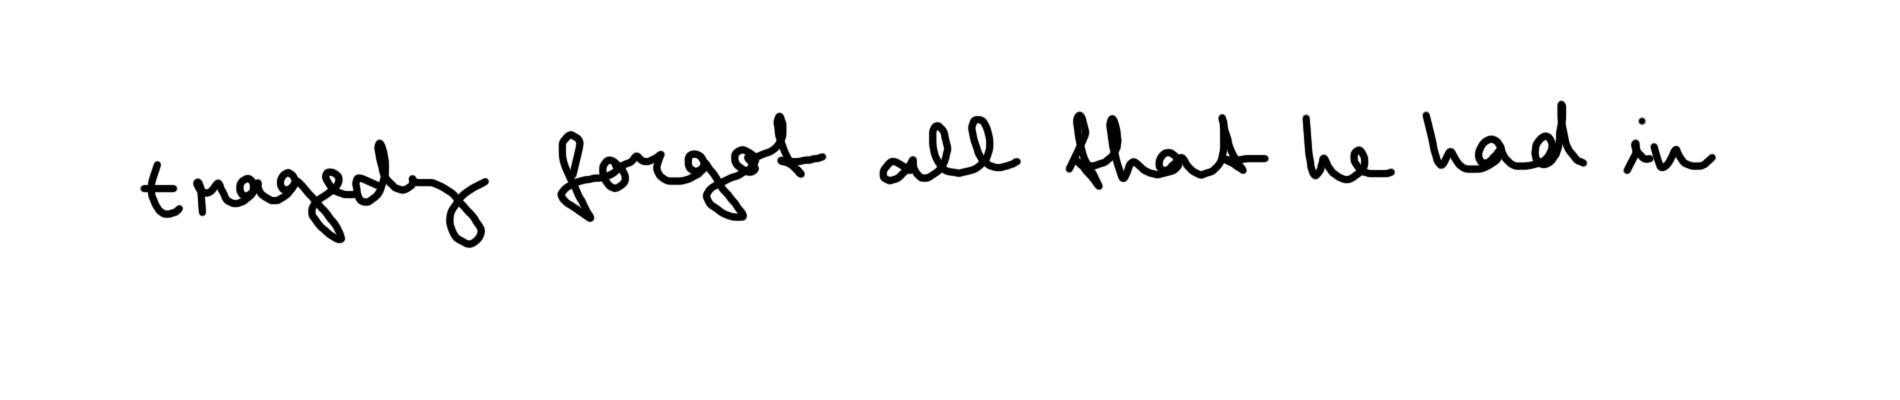 tragedy forgot all that he had in